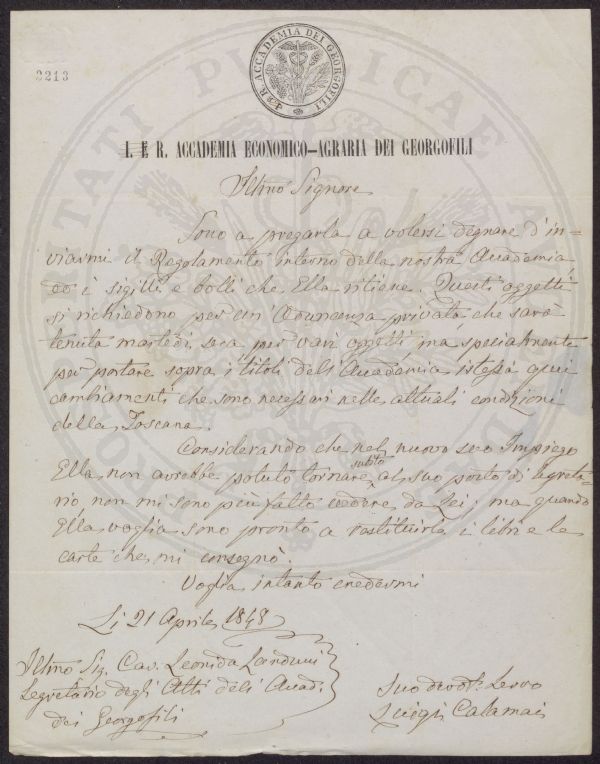 2213
I. E R. ACCADEMIA DEI GEORGOFILI
I. E R. ACCADEMIA ECONOMICO-AGRARIA DEI GEORGOFILI
Illmo Signore
Sono a pregarla a volersi degnare d'in=
viarmi il Regolamento interno della nostra Accademia
co' i sigilli e bolli che Ella ritiene. Questi oggetti
si richiedono per un Adunanza privata che sarà
tenuta martedì sera per varj oggetti ma specialmente
per portare sopra i titoli dell'Accademia istessa quei
cambiamenti che sono necessarj nelle attuali condizioni
della Toscana.
Considerando che nel nuovo suo Impiego
Ella non avrebbe potuto tornare subito al suo posto di Segreta-
rio non mi sono più fatto vedere da Lei; ma quando
Ella voglia sono pronto a restituirle i libri e le
carte che mi consegnò.
Voglia intanto credermi
Li 21 Aprile 1848
Illmo Sig. Cav. Leonida Landucci
Segretario degli Atti dell'Accad.
dei Georgofili
Suo devot. Servo
Luigi Calamai